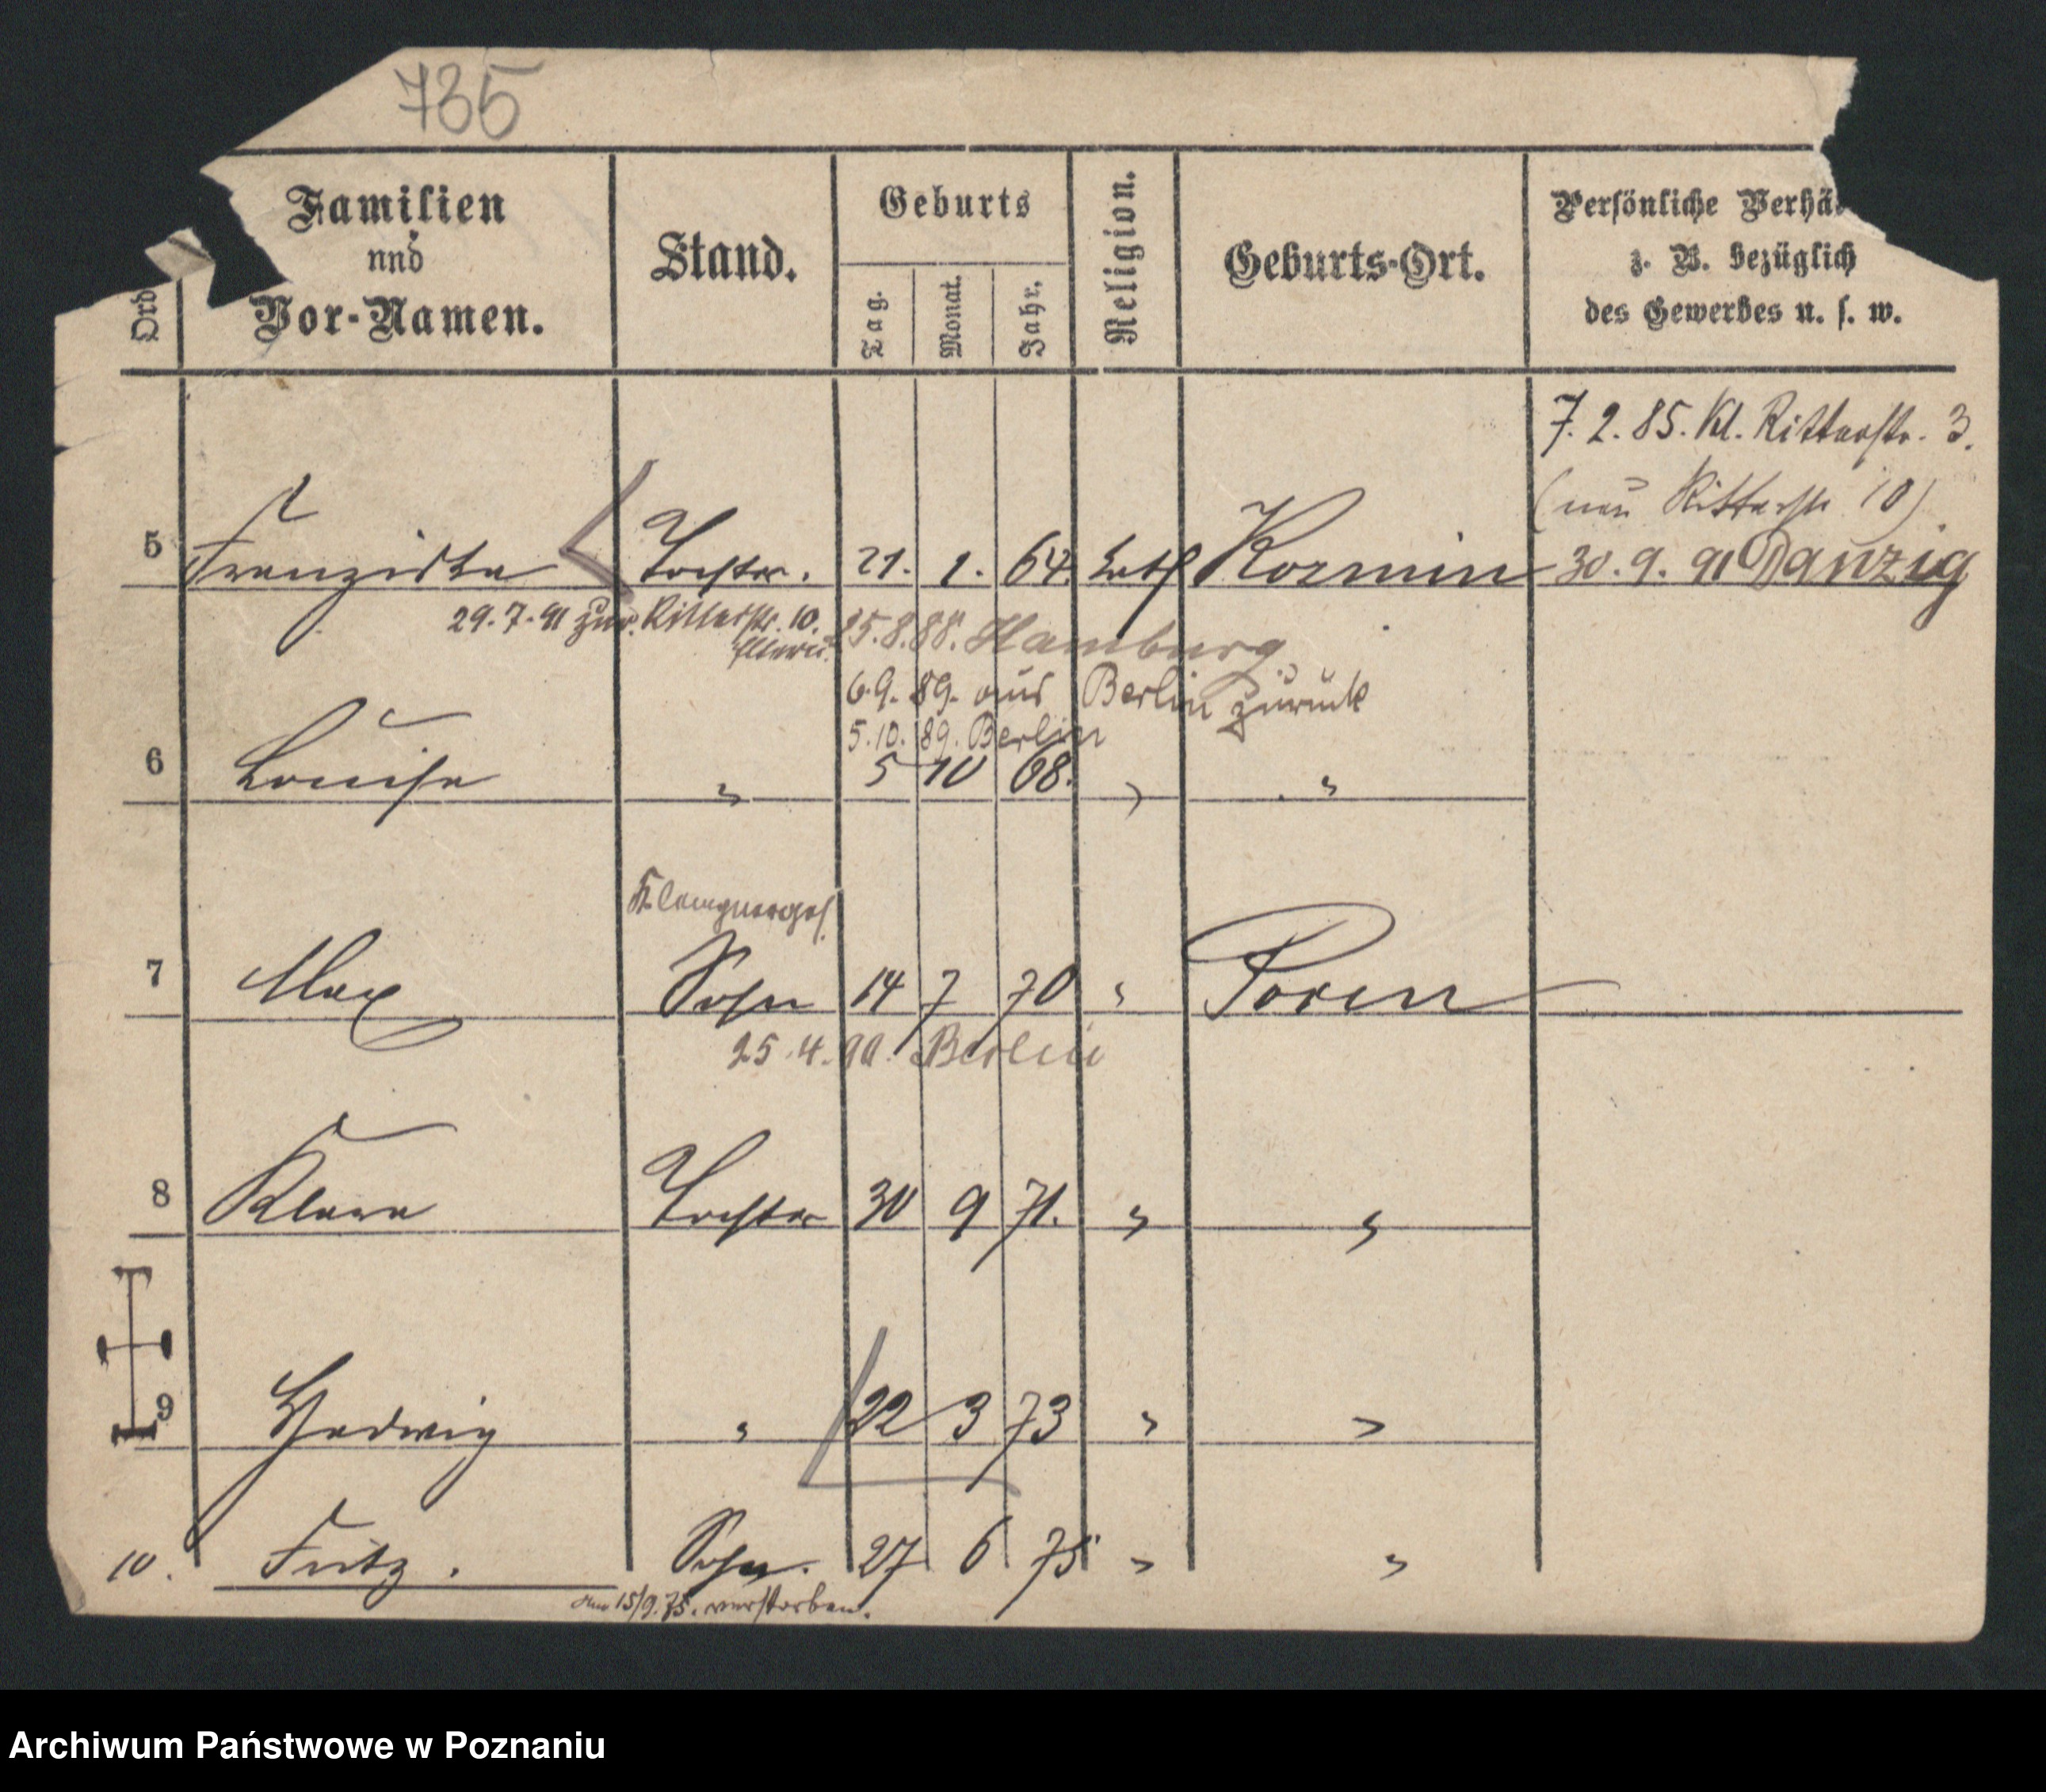 735
Ord
Familien
und
Vor-Namen.
Stand.
Geburts
Tag.
Monat.
Jahr.
Religion.
Geburts-Ort.
Persönliche Verhä
z. B. bezüglich
des Gewerbes u. s. w.
7. 2. 85. Kl. Ritterstr. 3.
(neu Ritterstr 10).
5 Franziska Tochter. 21. 1. 64. kath Kozmin 30. 9. 91 Danzig
29. 7. 91 zur. Ritterstr. 10.
25. 8. 88. Hamburg
6. 9. 89. aus Berlin zurück
5. 10. 89. Berlin
6 Louise " 5 10 68. " "
7 Max Sohn 14 7 70 " Posen
25. 4. 90. Berlin
8 Klara Tochter 30 9 71. " "
9 Hedwig " 22 3 73 " "
10. Fritz. Sohn. 27 6 75 " "
am 15/9. 75. verstorben.
Archiwum Państwowe w Poznaniu